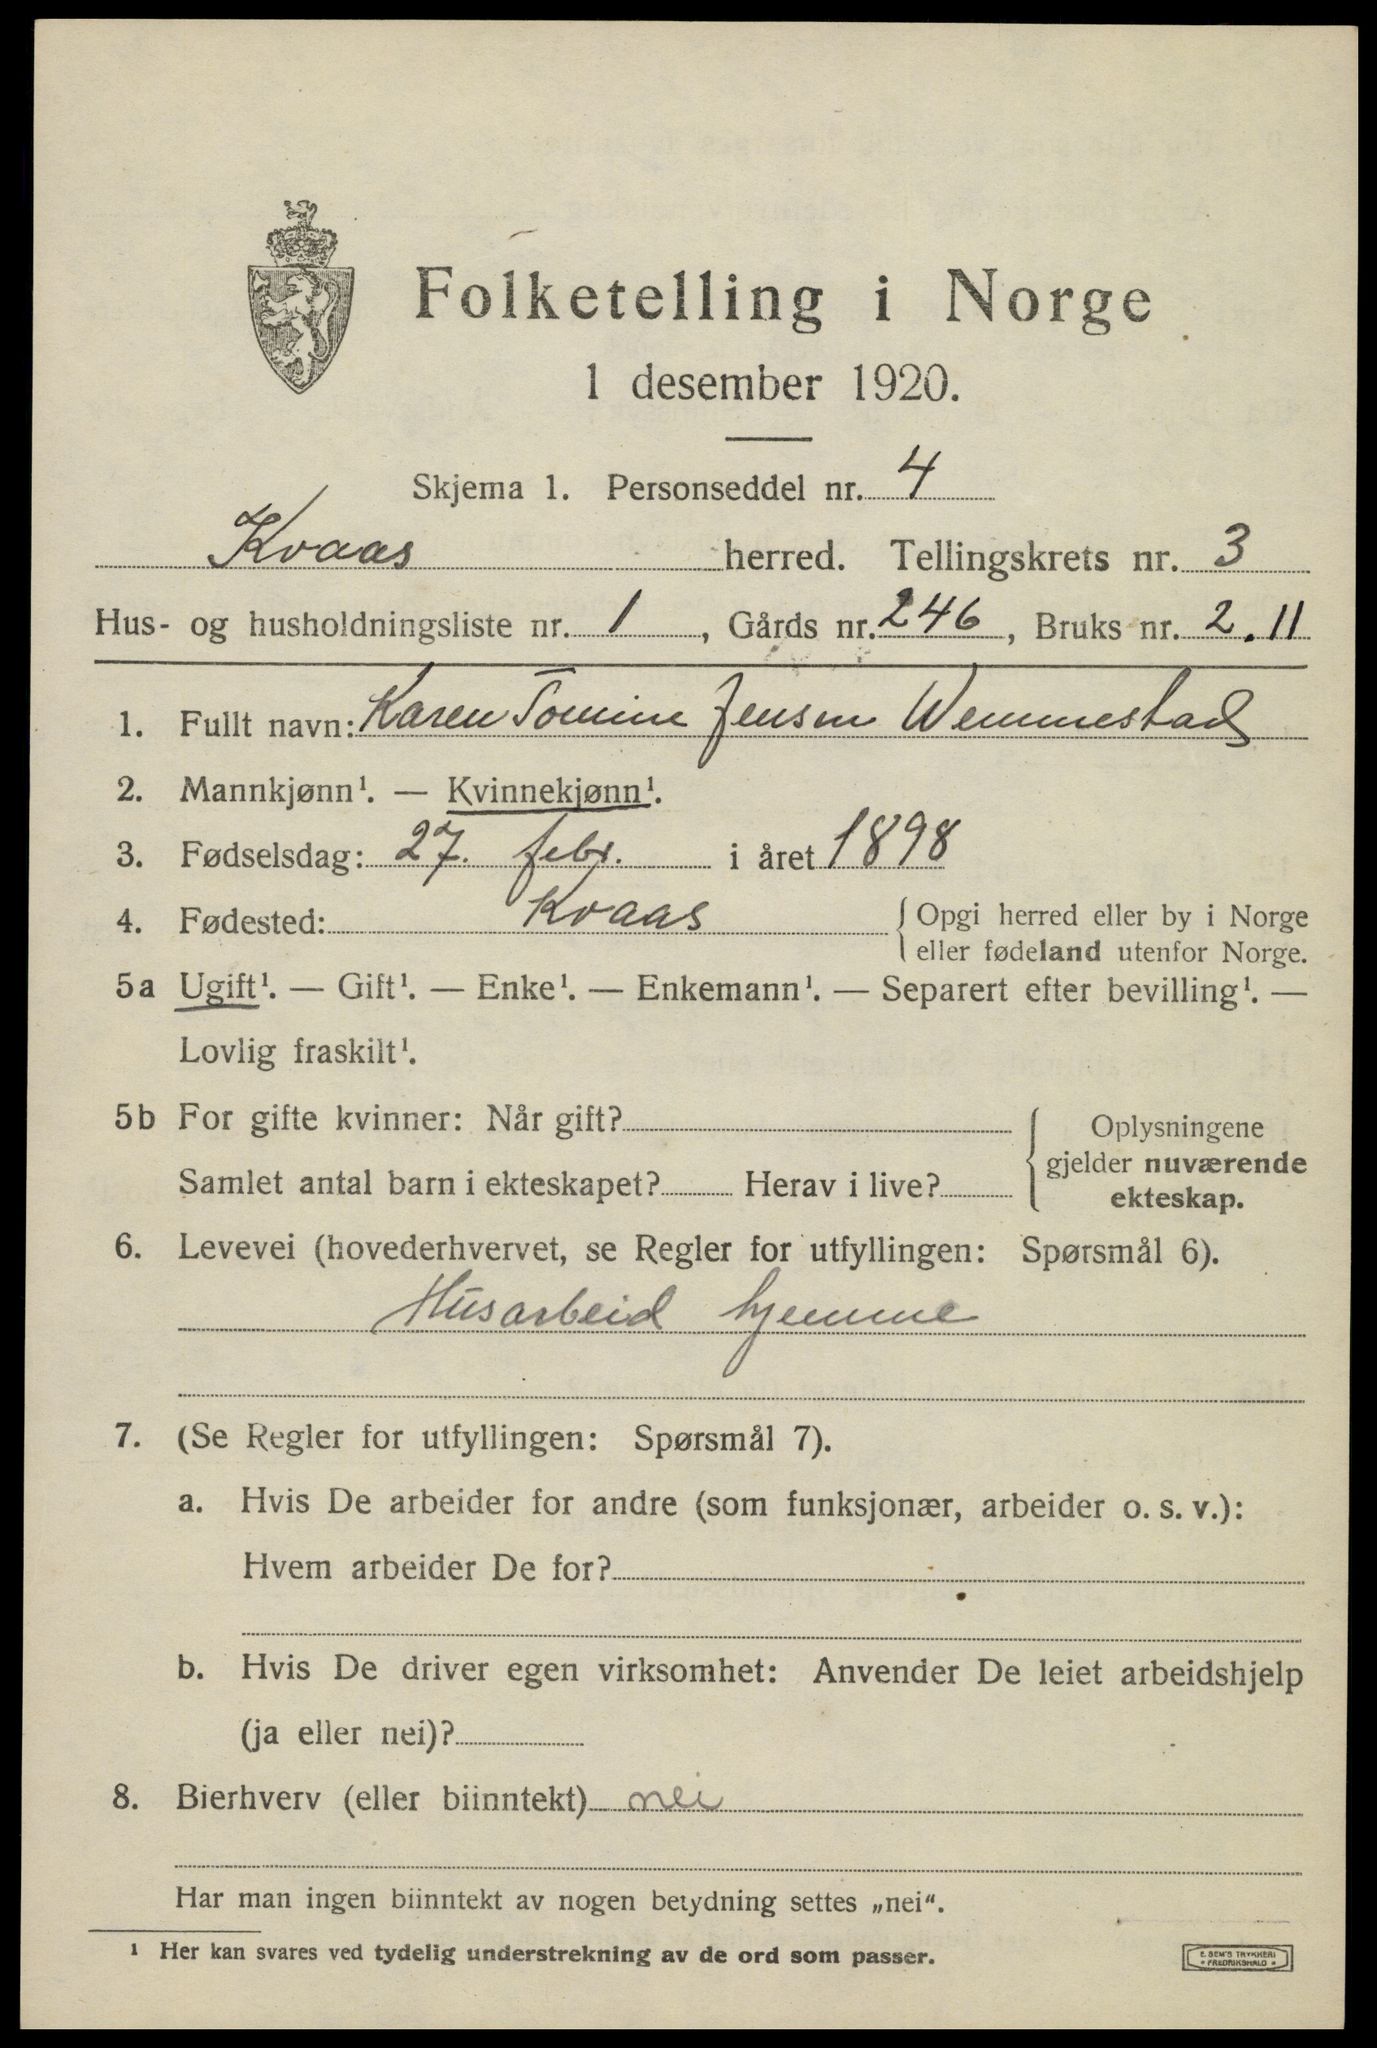 Folketelling i Norge
1 desember 1920.
Skjema 1. Personseddel nr. 4
Kvaas herred. Tellingskrets nr. 3
Hus- og husholdningsliste nr. 1, Gårds nr. 246, Bruks nr. 2.11
1. Fullt navn: Karen Tomine Jensen Wemmestad
2. Mannkjønn¹. — Kvinnekjønn¹.
3. Fødselsdag: 27. febr. i året 1898
4. Fødested: Kvaas { Opgi herred eller by i Norge
eller fødeland utenfor Norge.
5a Ugift¹. — Gift¹. — Enke¹. — Enkemann¹. — Separert efter bevilling¹. —
Lovlig fraskilt¹.
5b For gifte kvinner: Når gift? { Oplysningene
gjelder nuværende
Samlet antal barn i ekteskapet? Herav i live? ekteskap.
6. Levevei (hovederhvervet, se Regler for utfyllingen: Spørsmål 6).
Husarbeid hjemme
7. (Se Regler for utfyllingen: Spørsmål 7).
a. Hvis De arbeider for andre (som funksjonær, arbeider o. s. v.):
Hvem arbeider De for?
b. Hvis De driver egen virksomhet: Anvender De leiet arbeidshjelp
(ja eller nei)?
8. Bierhverv (eller biinntekt) nei
Har man ingen biinntekt av nogen betydning settes „nei“.
¹ Her kan svares ved tydelig understrekning av de ord som passer.
E. SEM'S TRYKKERI
* FREDRIKSHALD *